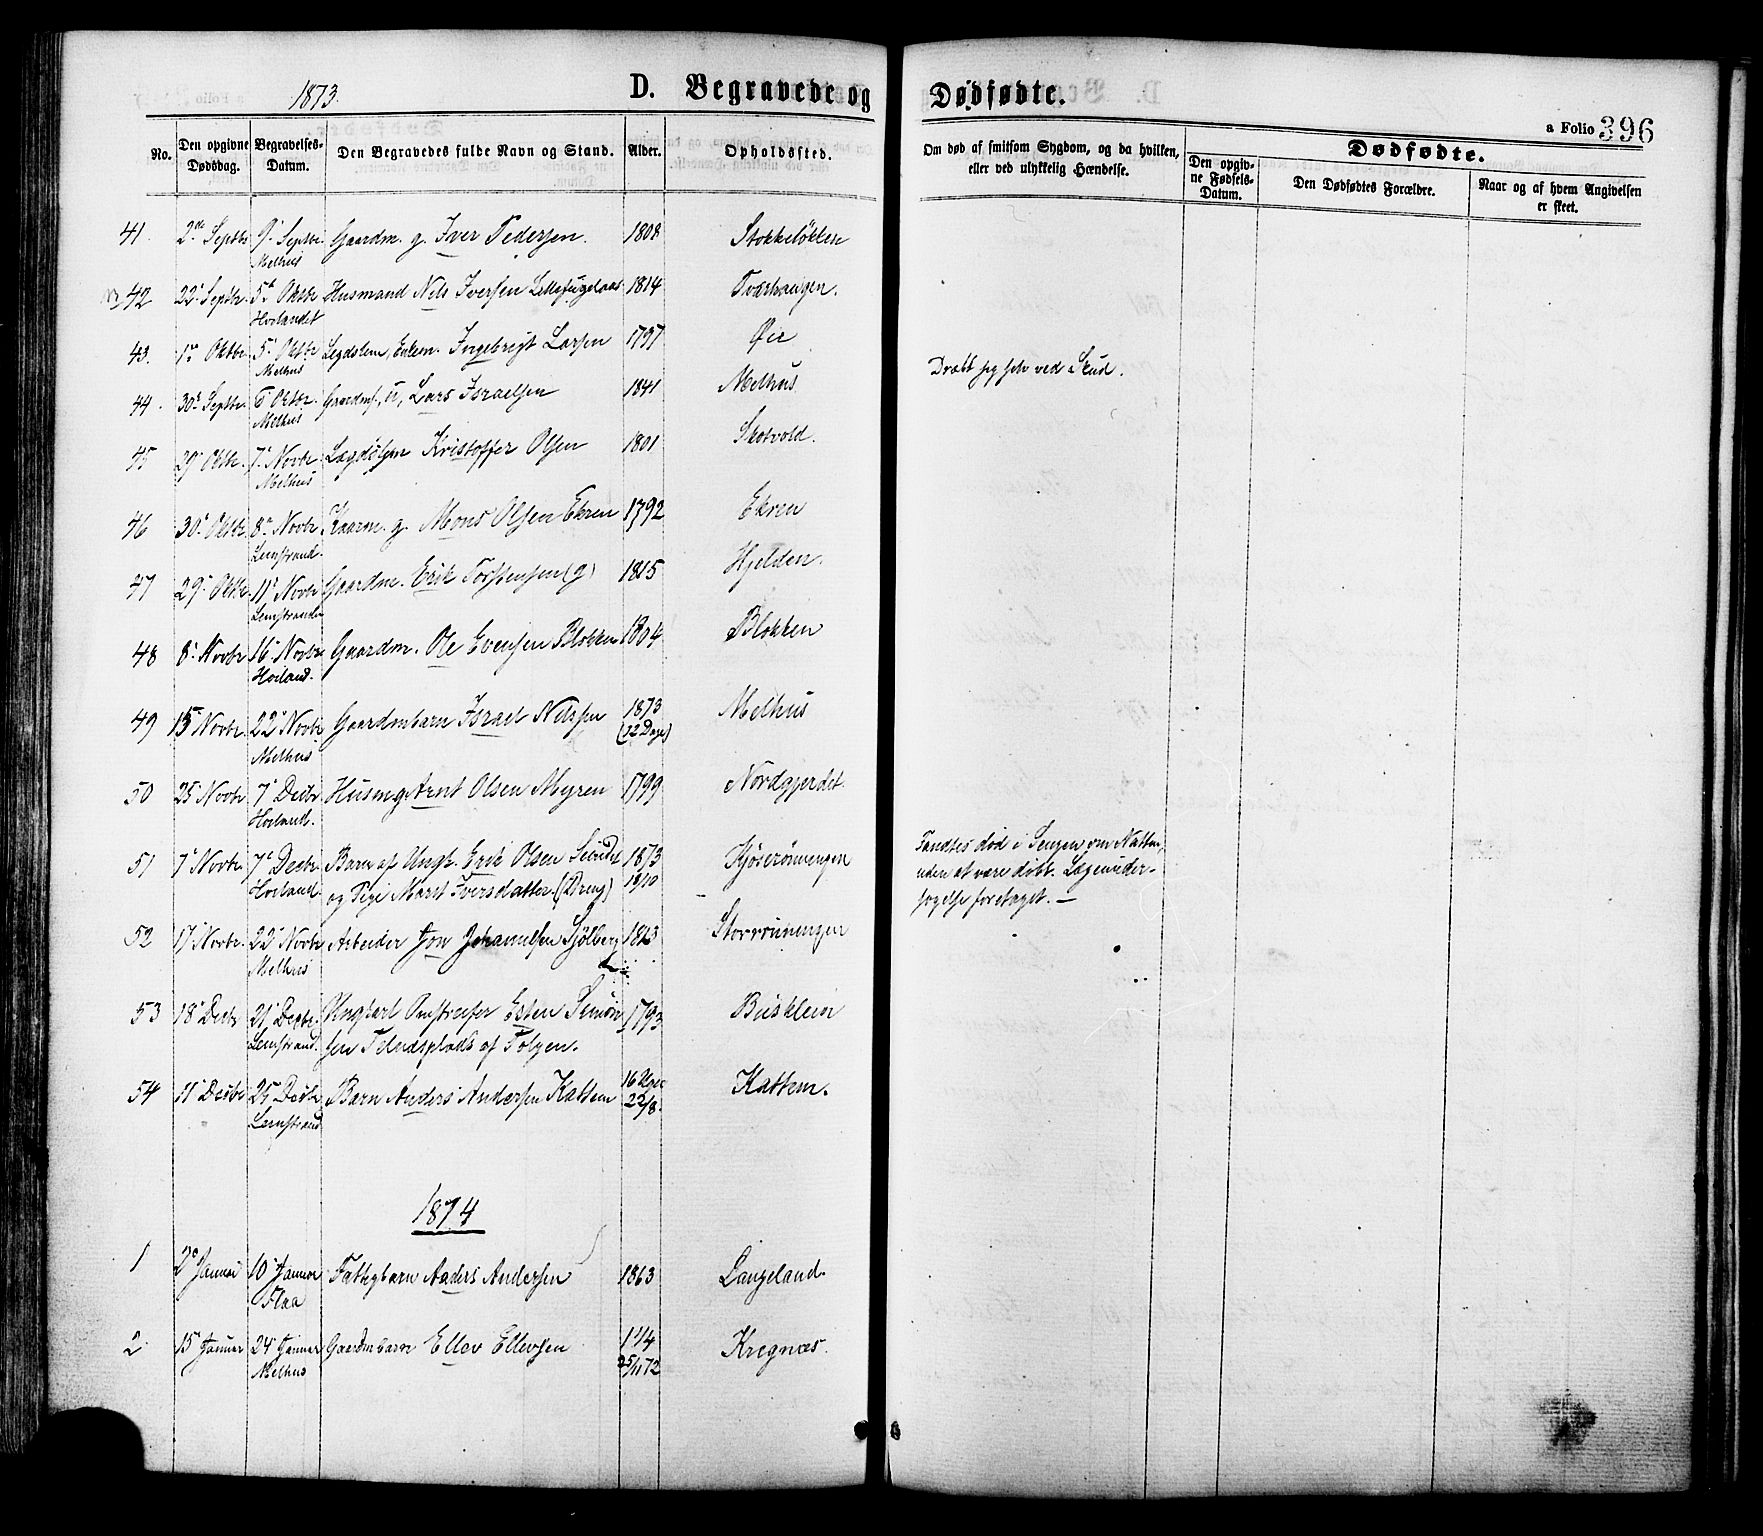 1873.
D. Begravede og Dødfødte.
a Folio 396
No. Den opgivne Dødsdag. Begravelses-Datum. Den Begravedes fulde Navn og Stand. Alder. Opholdssted. Om død af smitsom Sygdom, og da hvilken, eller ved ulykkelig Hændelse. Dødfødte. Den opgivne Fødsels-Datum. Den Dødfødtes Forældre. Naar og af hvem Angivelsen er skeet.
41. 2den Septbr 9. Septbr Gaardm. g. Iver Pedersen. 1808 Stokkeløkken
Melhus
42 22. Septbr. 5. Oktbr Husmand Nils Iversen 1814 Tværhaugen.
Hoilandet
43. 1. Oktbr. 5. Oktbr Legdslem, Enkem. Ingebrigt Larsen 1797 Øie
Melhus
44. 30. Septbr. 6 Oktbr. Gaardmd., u, Lars Israelsen 1841 Melhus Dræbt sig selv ved Skud.
Melhus
45 29. Oktbr. 7. Novbr Lægdslem Kristoffer Olsen 1801 Skotvold.
Melhus
46 30. Oktbr 8. Novbr Kaarm. g. Mons Olsen Ekren 1792 Ekren
Lenstrand.
47 29. Oktbr. 11. Novbr Gaardm. Erik Torstensen (g) 1815 Hjelden.
Lenstranden
48 8. Novbr 16. Novbr Gaardm. Ole Evensen Blokken 1804 Blokken
Hoiland.
49 15 Novbr. 22. Novbr Gaardmbarn Israel Nilssen 1873 Melhus
Melhus (12 Dage)
50 25 Novbr 7. Decbr Husm g Arnt Olsen Myren 1799 Nordgjerdet.
Hoiland.
51 7. Novbr 7. Decbr Barn af Ungk. Erik Olsen 1873 Kjøsrønningen Fandtes død i Sengen om Natten,
Hoiland og Pige Marit Iversdatter (Dreng) 18/10 uden at være døbt. Lægeunder-
søgelse foretaget. —
52 17 Novbr. 22. Novbr Arbeider Jon Johannessen Sjølberg 1823 Storrønningen
Melhus
53 18. Decbr 21. Decbr. Ungkarl Esten Simon 1793 Busklein
Lenstrand. sen af Tolgen.
54 11. Decbr 25 Decbr Barn Anders Andersen Kattem 16 Uger Kattem.
Lenstrand 22/8.
1874
1 2. Januar 10. Januar Fattigbarn Anders Andersen 1863 Langeland.
Flaa
2. 15. Januar 24. Januar Gaardmbarn Ellev Ellevsen 1 1/4 Kregnæs.
Melhus 25/11 72